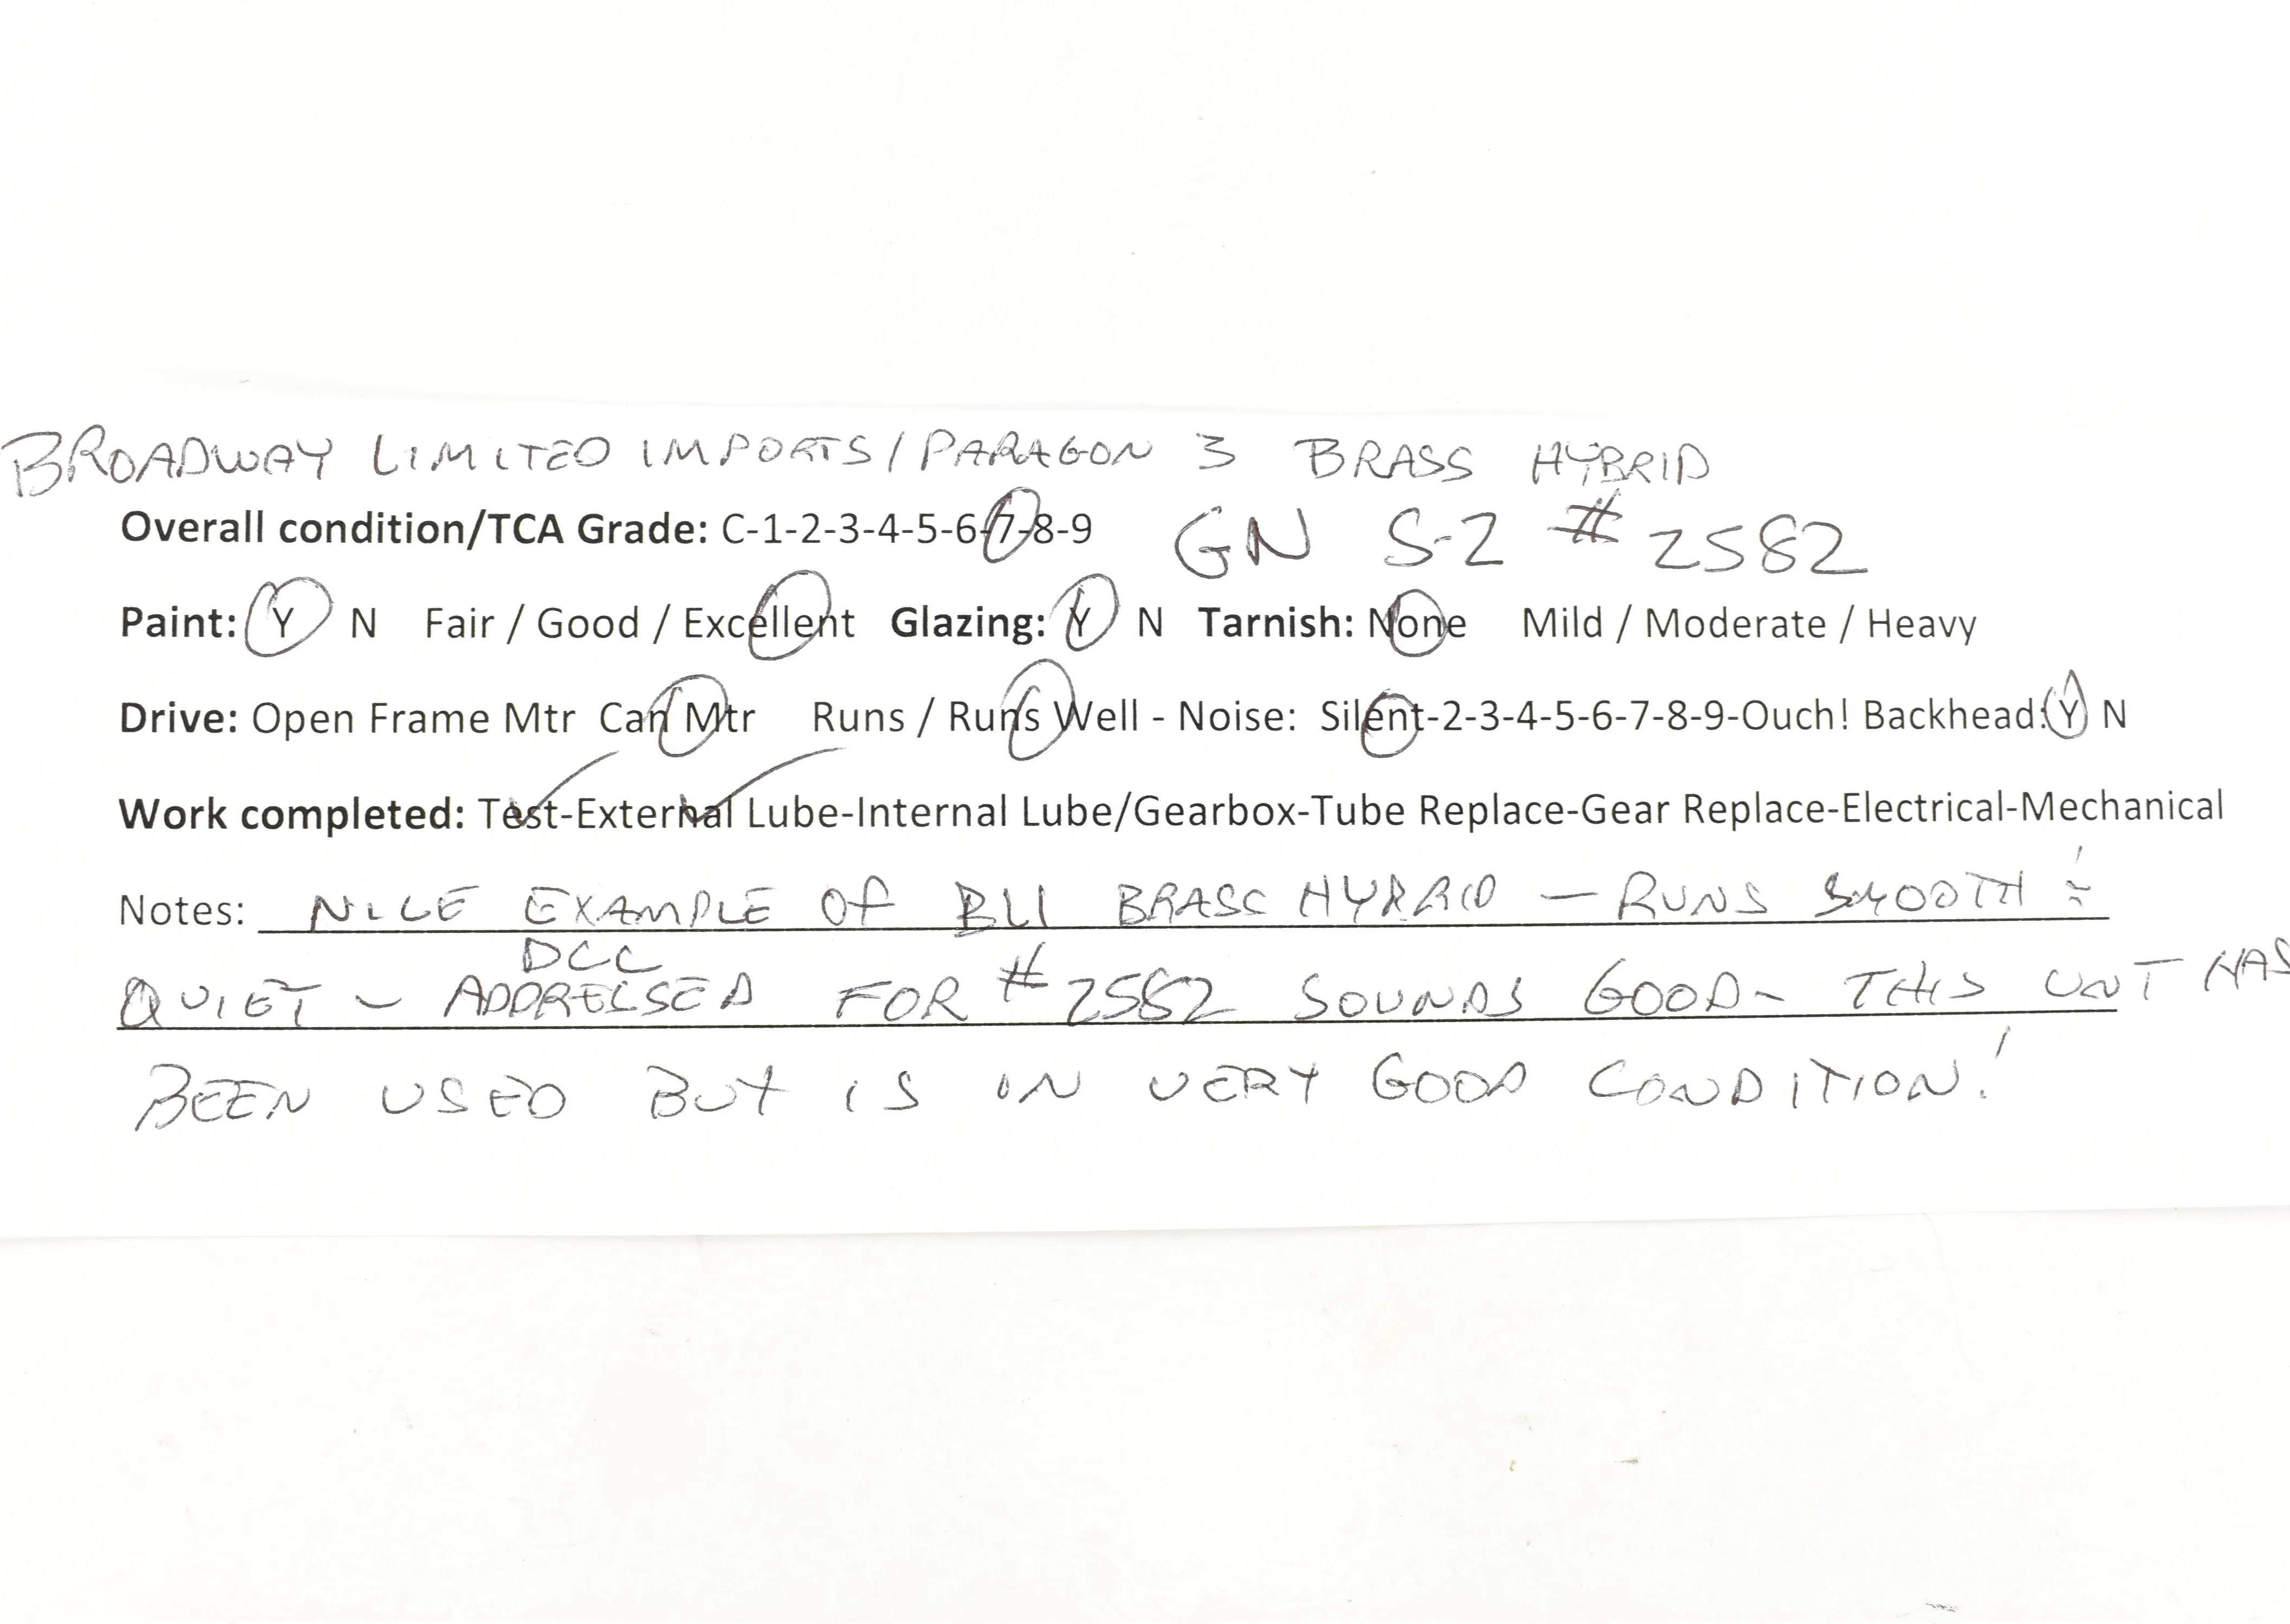 BROADWAY LIMITED IMPORTS/PARAGON 3 BRASS HYBRID
Overall condition/TCA Grade: C-1-2-3-4-5-6-7-8-9 GN S-2 #2582
Paint: Y N Fair / Good / Excellent Glazing: Y N Tarnish: None Mild / Moderate / Heavy
Drive: Open Frame Mtr Can Mtr Runs / Runs Well - Noise: Silent-2-3-4-5-6-7-8-9-Ouch! Backhead: Y N
Work completed: Test-External Lube-Internal Lube/Gearbox-Tube Replace-Gear Replace-Electrical-Mechanical
Notes: NICE EXAMPLE OF BLI BRASS HYBRID — RUNS SMOOTH
DCC
QUIET - ADDRESSED FOR #2582 SOUNDS GOOD - THIS UNIT HAS
BEEN USED BUT IS IN VERY GOOD CONDITION!